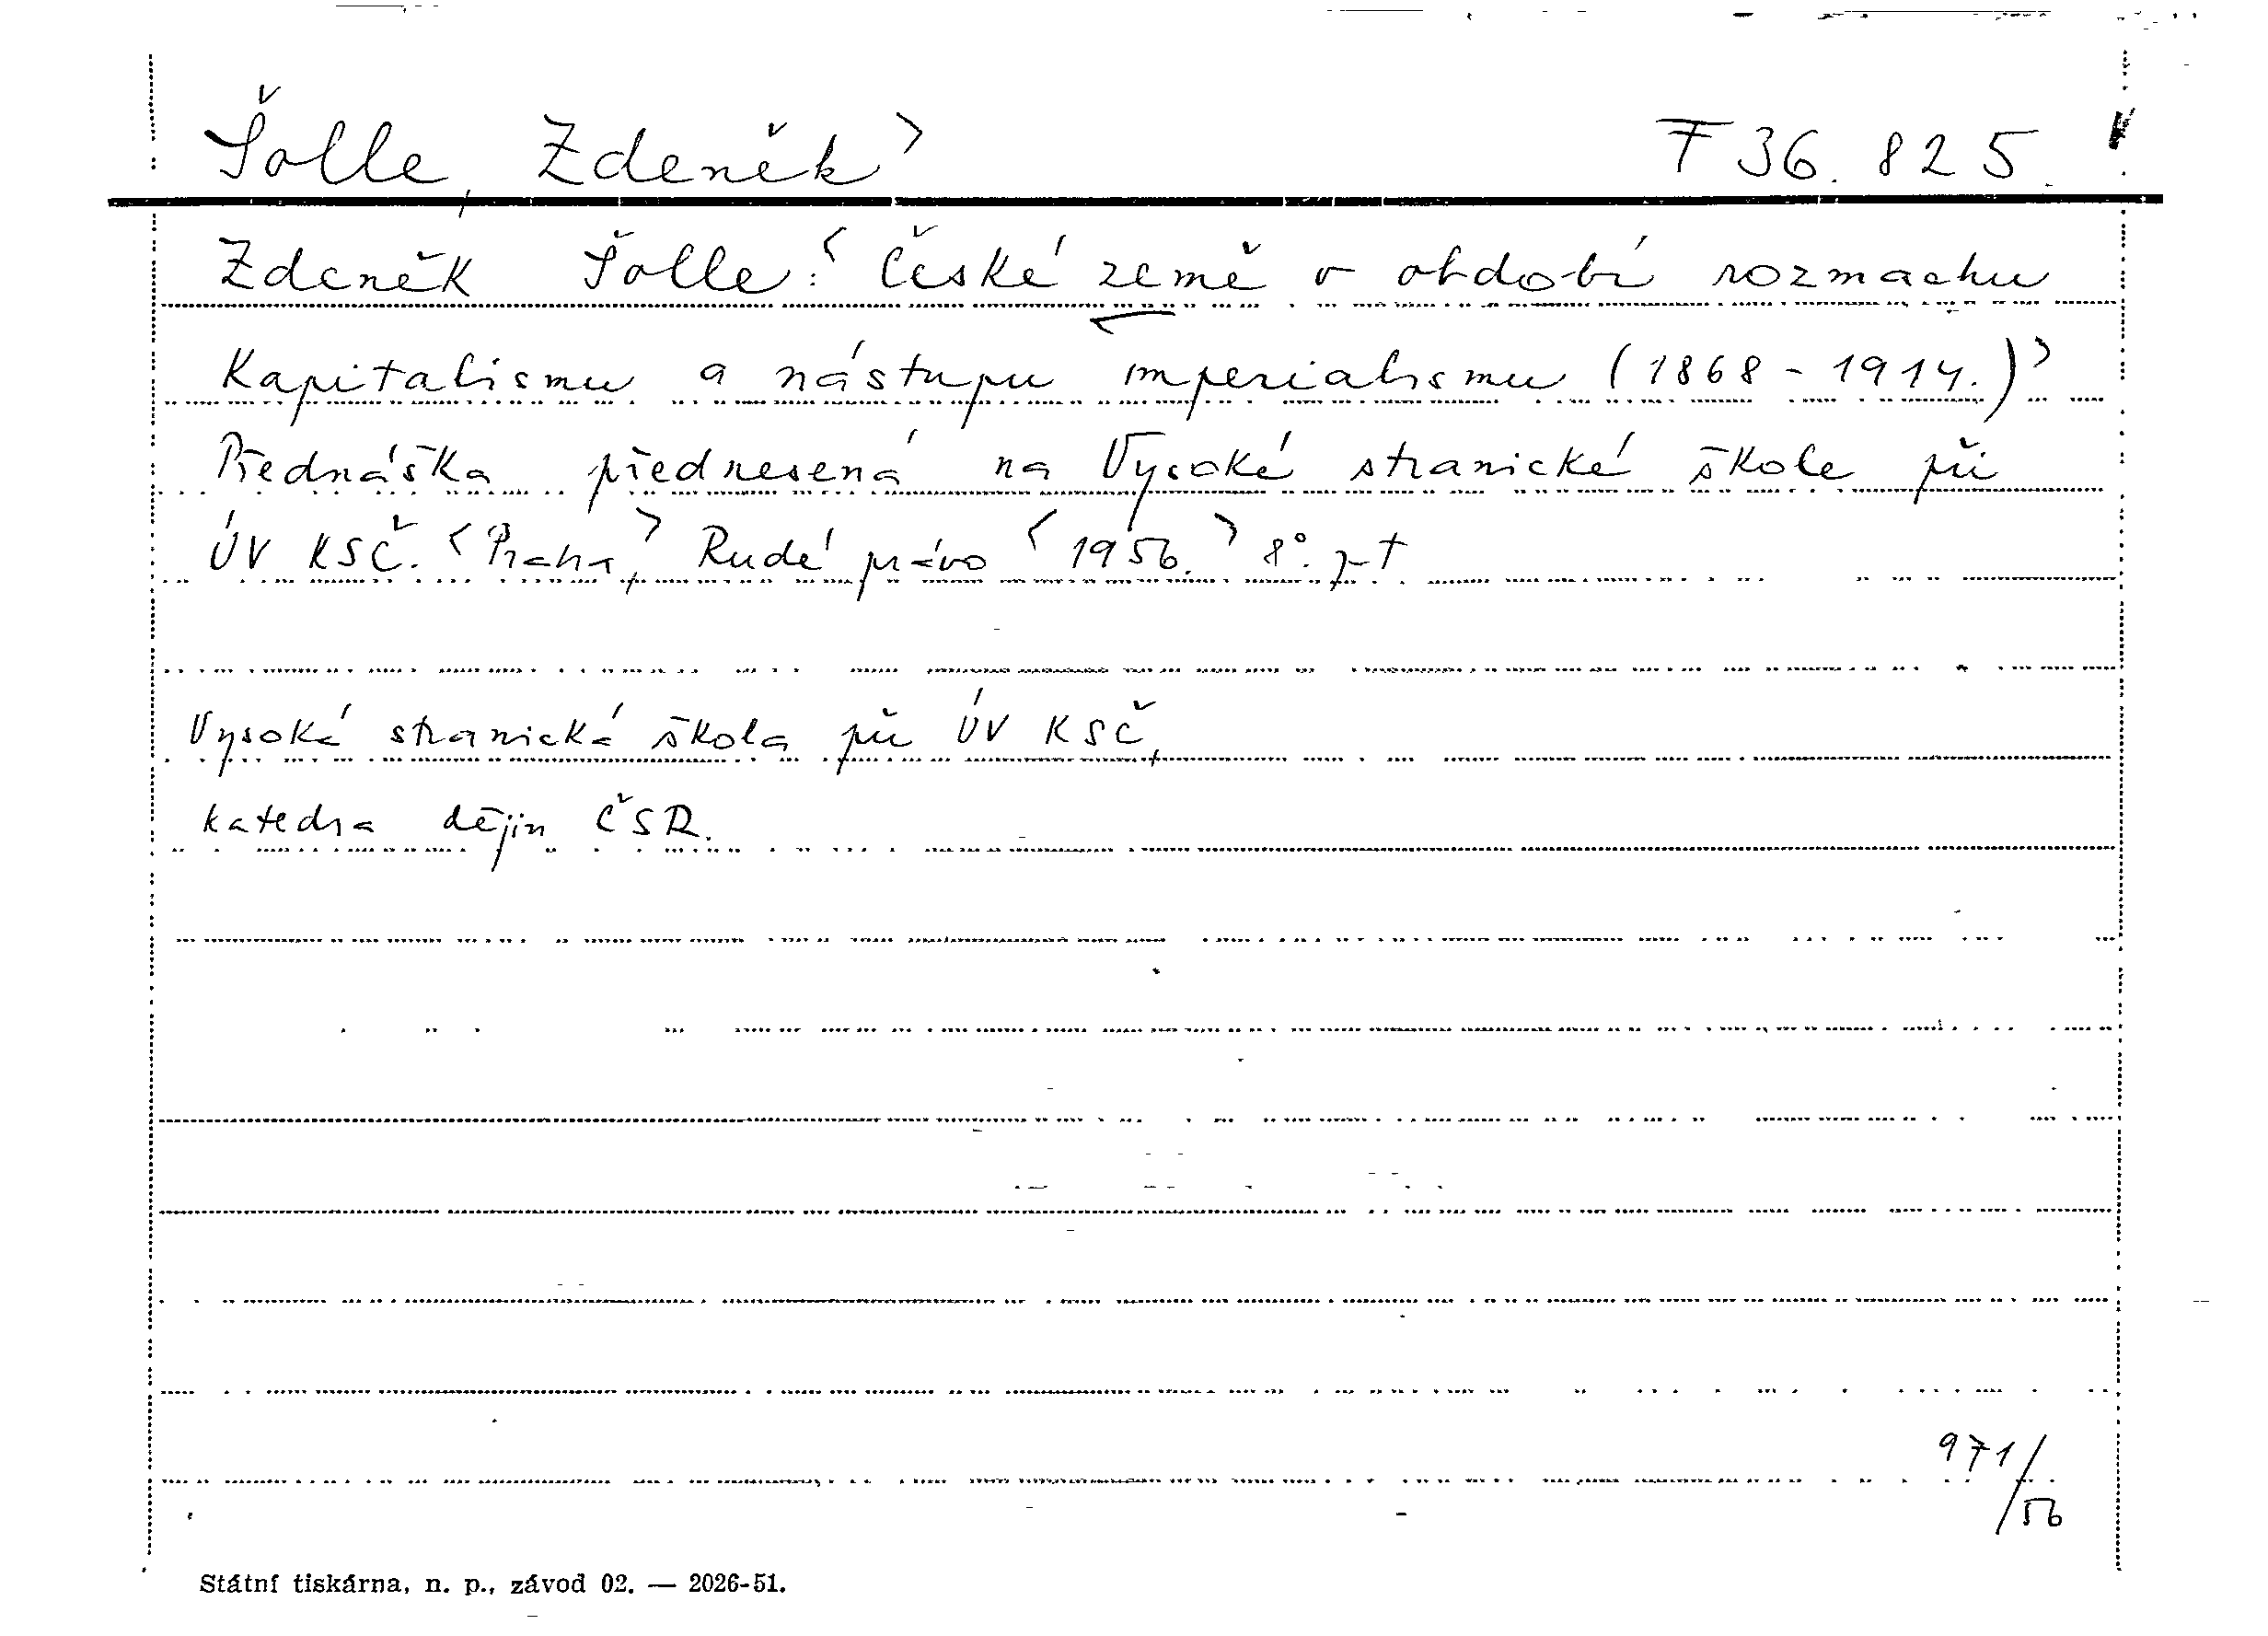 Šolle, Zdeněk> F 36.825.
Zdeněk Šolle: <České země v období rozmachu
kapitalismu a nástupu imperialismu (1868-1914.)>
Přednáška přednesená na Vysoké stranické škole při
ÚV KSČ. <Praha,> Rudé právo <1956.> 8°.
Vysoká stranická škola při ÚV KSČ,
katedra dějin ČSR.
971/56
Státní tiskárna, n. p., závod 02. — 2026-51.